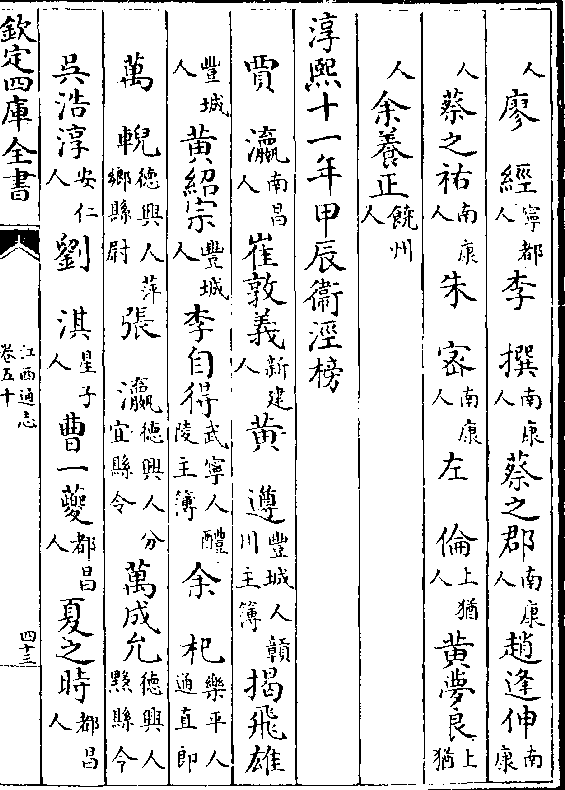 人廖經寧都人李撰南康人蔡之郡南康人趙逢伸南康
人蔡之祐南康人朱宻南康人左倫上猶人黄夢良上猶
人余養正饒州人
淳熙十一年甲辰衞涇榜
賈瀛南昌人崔敦義新建人黄遵豐城人贛川主簿揭飛雄
豐城人黄紹宗豐城人李自得武寧人醴陵主簿余杞樂平人通直郎
萬輗德興人萍鄉縣尉張瀛德興人分宜縣令萬成允德興人黟縣令
吳浩淳安仁人劉淇星子人曹一夔都昌人夏之時都昌人
欽定四庫全書
江西通志
卷五十
四十三